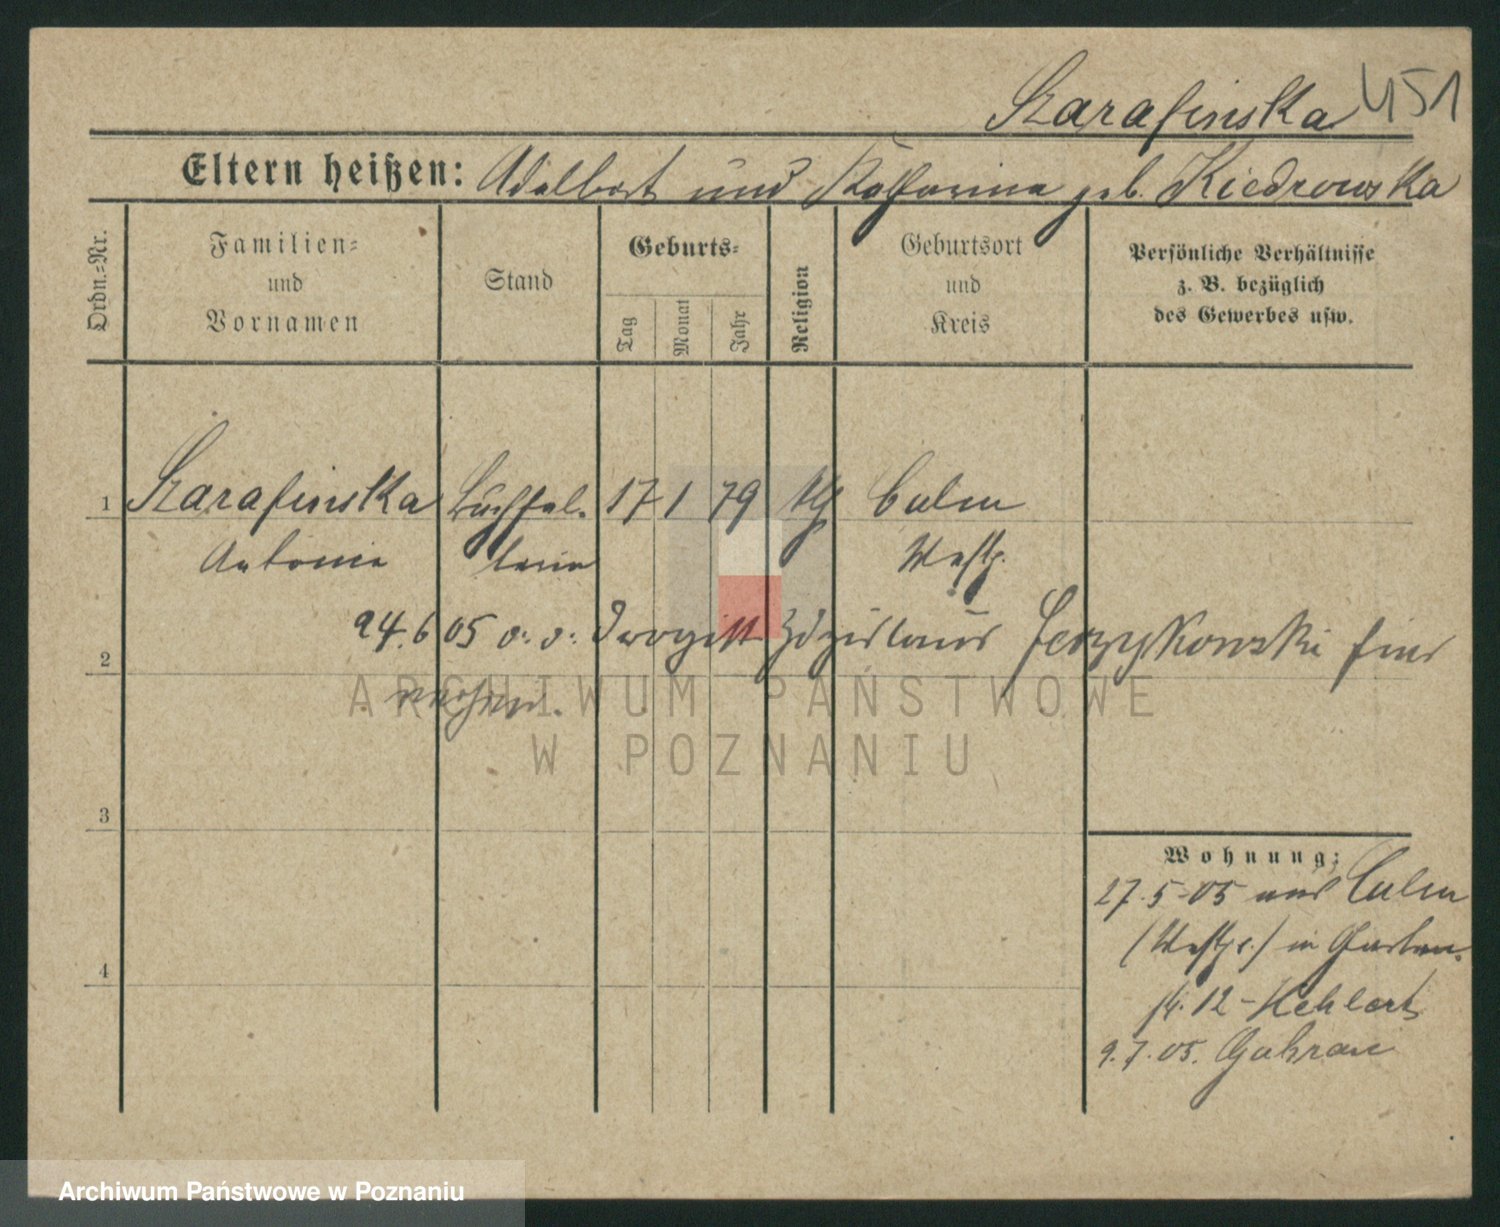 Szarafinska 451
Eltern heißen: Adalbert und Katharina geb. Kiedrowska
Ordn.-Nr.
Familien-
und
Vornamen
Stand
Geburts-
Tag
Monat
Jahr
Religion
Geburtsort
und
Kreis
Persönliche Verhältnisse
z. B. bezüglich
des Gewerbes usw.
1 Szarafinska Buchhal- 17 1 79 kth Culm
Antonie terin Westp.
24.6 05 o. v. Drogist Zdzislaus Jerzykowski hier
2
ARCHIWUM PAŃSTWOWE
W POZNANIU
3
Wohnung:
27.5-05 aus Culm
(Westpr.) in Garten-
4
str. 12 - Kehlert
9.7.05. Guhrau
Archiwum Państwowe w Poznaniu